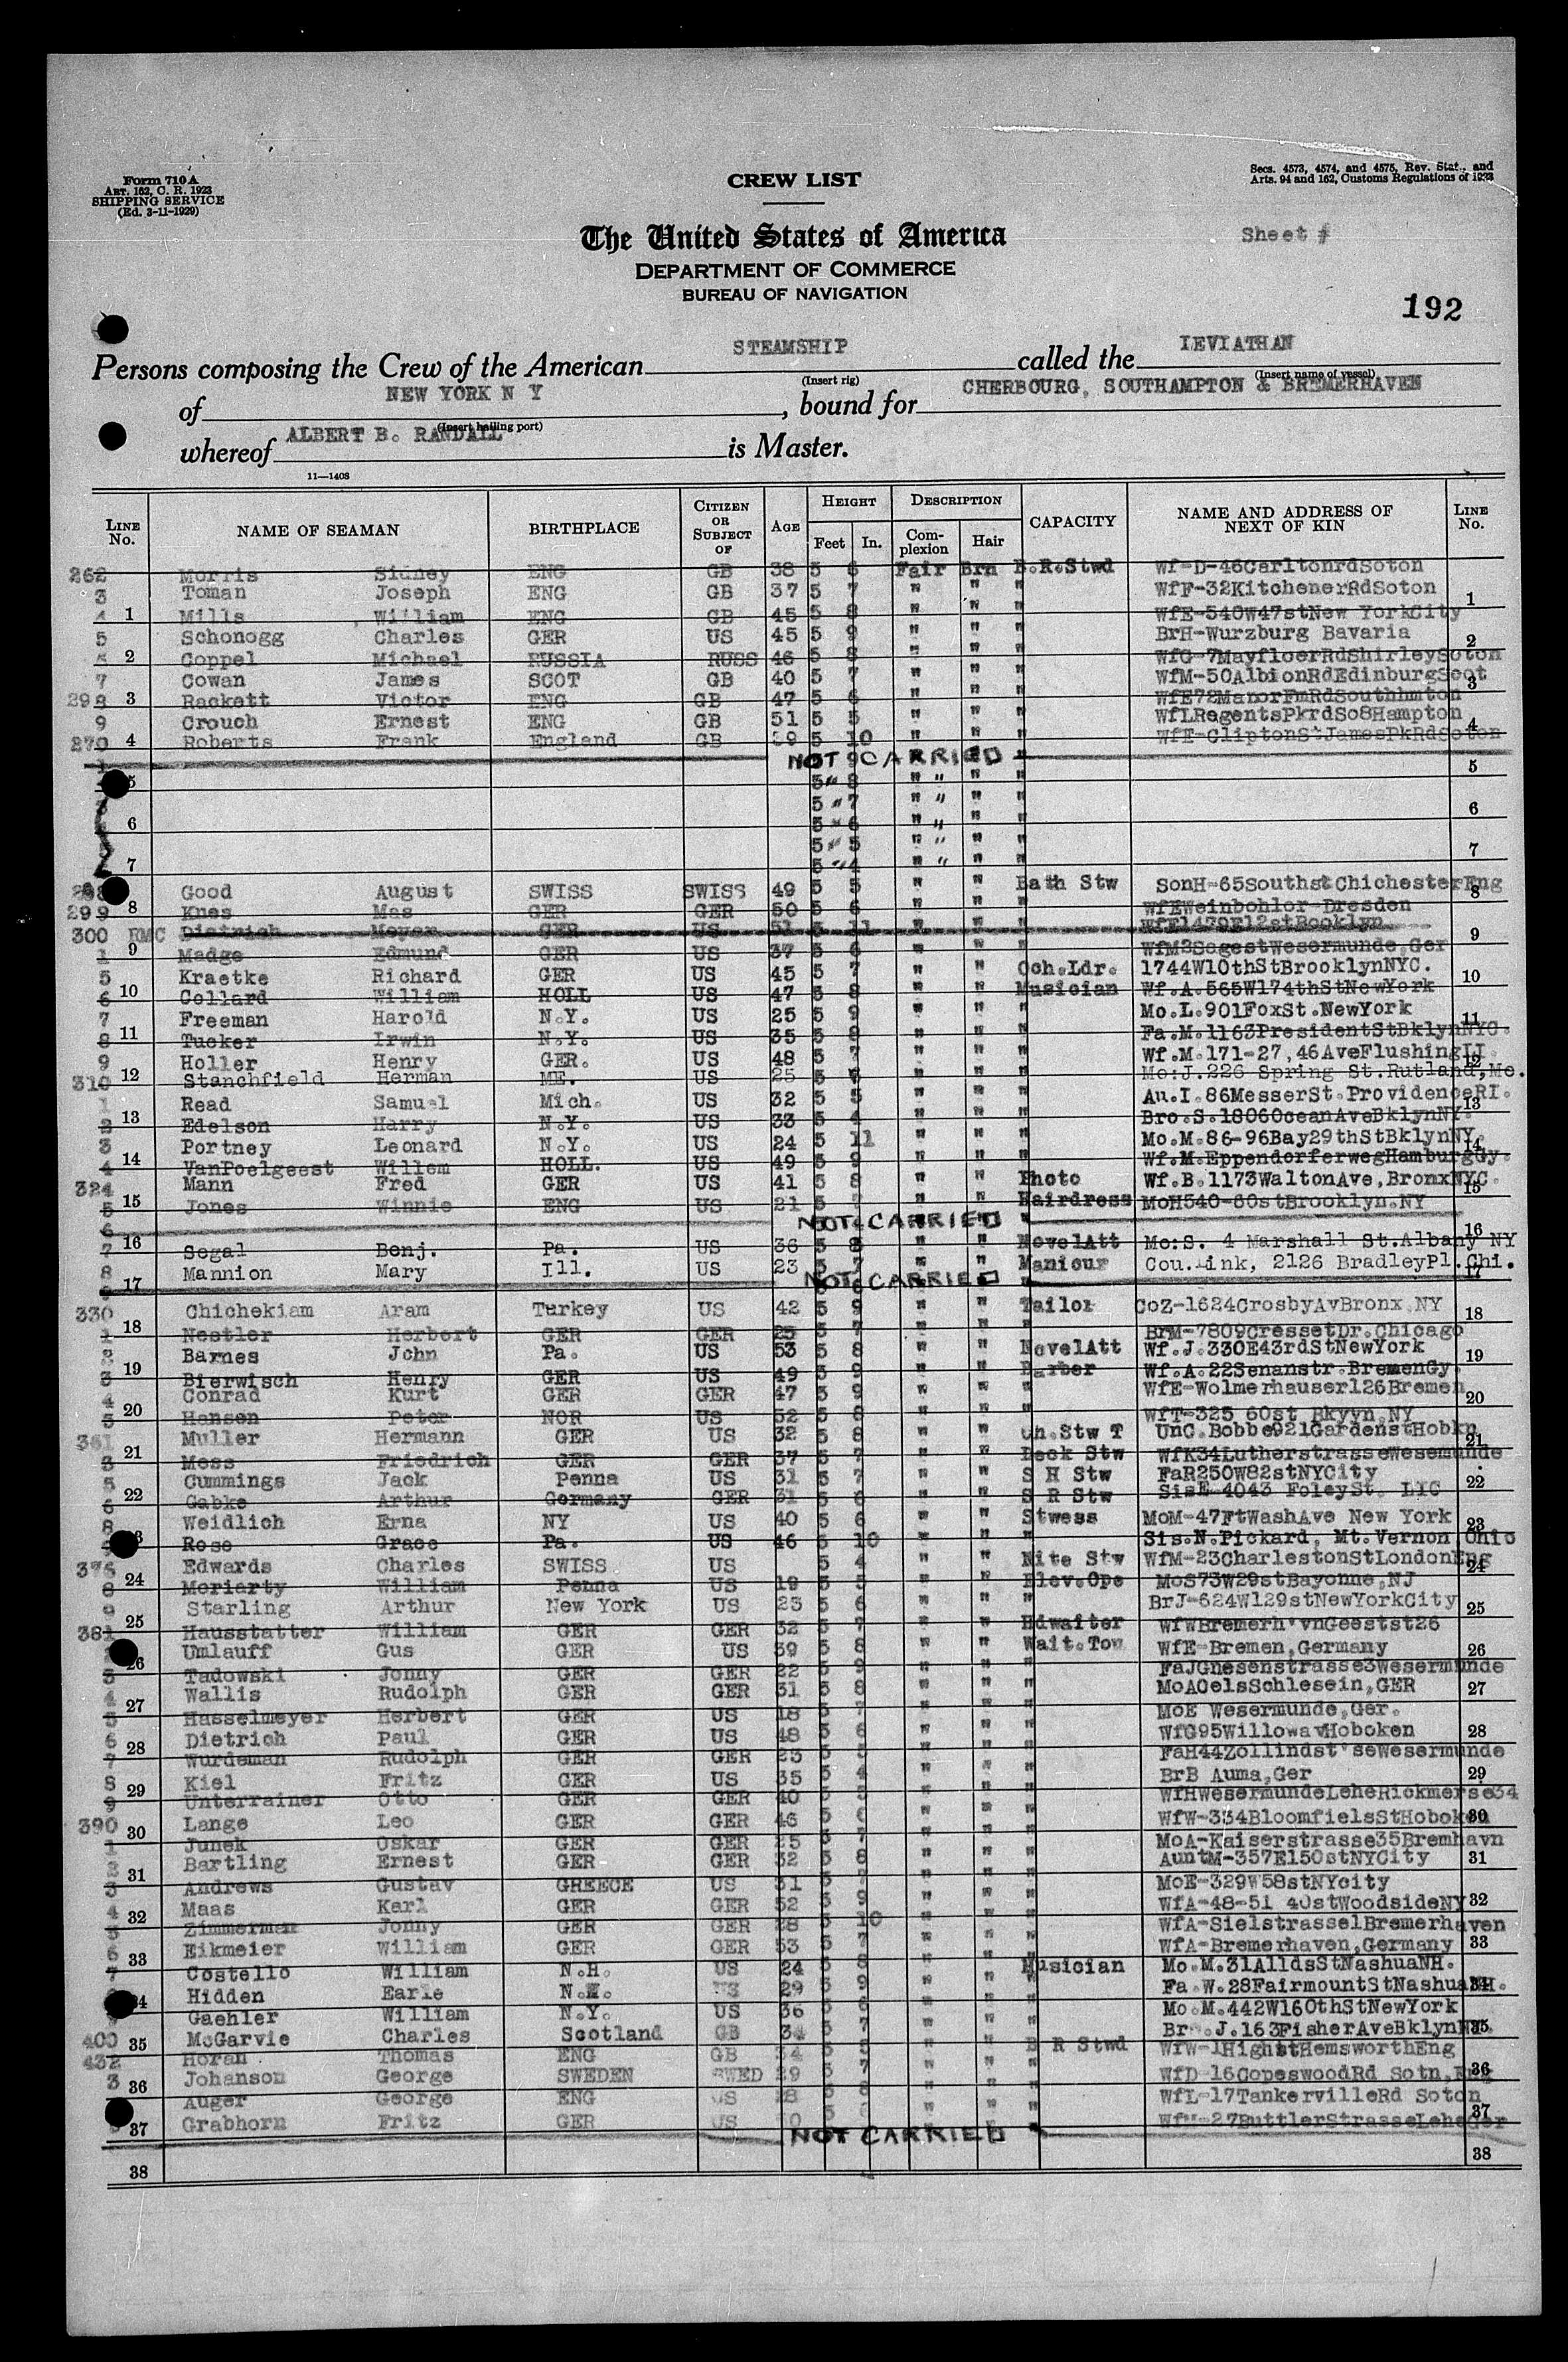 Form 710 A
ART. 162, C. R. 1923
SHIPPING SERVICE
(Ed. 3-11-1929)
CREW LIST
Secs. 4573, 4574, and 4575, Rev. Stat., and
Arts. 94 and 162, Customs Regulations of 1923
The United States of America
Sheet #
DEPARTMENT OF COMMERCE
BUREAU OF NAVIGATION
192
Persons composing the Crew of the American STEAMSHIP called the LEVIATHAN
(Insert rig) (Insert name of vessel)
of NEW YORK N Y, bound for CHERBOURG, SOUTHAMPTON & BREMERHAVEN
(Insert hailing port)
whereof ALBERT B. RANDALL is Master.
11—1408
LINE No. NAME OF SEAMAN BIRTHPLACE CITIZEN OR SUBJECT OF AGE HEIGHT Feet In. DESCRIPTION Complexion Hair CAPACITY NAME AND ADDRESS OF NEXT OF KIN LINE No.
262 Morris Sidney ENG GB 38 5 6 Fair Brn B.R.Stwd Wf-D-46CarltonrdSoton
3 Toman Joseph ENG GB 37 5 7 " " " WfF-32KitchenerRdSoton 1
4 1 Mills William ENG GB 45 5 8 " " " WfE-540W47stNew YorkCity
5 Schonogg Charles GER US 45 5 9 " " " BrH-Wurzburg Bavaria 2
2 Coppel Michael RUSSIA RUSS 46 5 8 " " " WfG-7MayfloerRdShirleySoton
7 Cowan James SCOT GB 40 5 7 " " " WfM-50AlbionRdEdinburgScot 3
298 3 Rackett Victor ENG GB 47 5 6 " " " WfE72ManorFmRdSouthhmton
9 Crouch Ernest ENG GB 51 5 5 " " " WfLRegentsPkrdSo8Hampton 4
270 4 Roberts Frank England GB 39 5 10 " " " WfE-CliptonStJamesPkRdSoton
NOT CARRIED 5
5 5 8 " " "
5 7 " " " 6
6 5 6 " " "
5 5 " " " 7
7 5 4 " " "
Good August SWISS SWISS 49 5 5 " " Bath Stw SonH-65SouthstChichesterEng 8
299 8 Knes Mas GER GER 50 5 6 " " " WfEWeinbohlor Dresden
300 RMC Dietrich Meyer GER US 51 5 11 " " " WfE1439E12stBooklyn 9
1 9 Madge Edmund GER US 37 5 6 " " " WfM2SegestWesermunde,Ger
5 Kraetke Richard GER US 45 5 7 " " Och.Ldr. 1744W10thStBrooklynNYC. 10
6 10 Collard William HOLL US 47 5 8 " " Musician Wf.A.565W174thStNewYork
7 Freeman Harold N.Y. US 25 5 9 " " " Mo.L.901FoxSt.NewYork 11
8 11 Tucker Irwin N.Y. US 35 5 8 " " " Fa.M.1163PresidentStBklynNYC.
9 Holler Henry GER. US 48 5 7 " " " Wf.M.171-27,46AveFlushingLI. 12
310 12 Stanchfield Herman ME. US 25 5 6 " " " Mo:J.226 Spring St.Rutland,Me.
1 Read Samuel Mich. US 32 5 5 " " " Au.I.86MesserSt.ProvidenceRI. 13
2 13 Edelson Harry N.Y. US 33 5 4 " " " Bro.S.1806OceanAveBklynNY.
3 Portney Leonard N.Y. US 24 5 11 " " " Mo.M.86-96Bay29thStBklynNY. 14
4 14 VanPoelgeest Willem HOLL. US 49 5 9 " " " Wf.M.EppendorferwegHamburgGy.
324 Mann Fred GER US 41 5 8 " " Photo Wf.B.1173WaltonAve,BronxNYC. 15
5 15 Jones Winnie ENG US 21 5 7 " " Hairdress MoH540-60stBrooklyn.NY
6 NOT CARRIED 16
7 16 Segal Benj. Pa. US 36 5 8 " " NovelAtt Mo:S. 4 Marshall St.Albany NY
8 17 Mannion Mary Ill. US 23 5 7 " " Manicur Cou.Link, 2126 BradleyPl.Chi. 17
NOT CARRIED
330 Chichekiam Aram Turkey US 42 5 9 " " Tailor CoZ-1624CrosbyAvBronx.NY 18
1 18 Nestler Herbert GER GER 25 5 7 " " " BrM-7809CressetDr.Chicago
2 Barnes John Pa. US 53 5 8 " " NovelAtt Wf.J.330E43rdStNewYork 19
3 19 Bierwisch Henry GER US 49 5 9 " " Barber Wf.A.22Senanstr.BremenGy.
4 Conrad Kurt GER GER 47 5 9 " " " WfE-Wolmerhauser126Bremen 20
5 20 Hansen Peter NOR US 52 5 8 " " " WfT-325 60st Bkyvn.NY
361 Muller Hermann GER US 32 5 8 " " Ch.Stw T UnC.Bobbe921GardenstHobkn 21
3 21 Mess Friedrich GER GER 37 5 7 " " Deck Stw WfK34LutherstrasseWesemunde
5 Cummings Jack Penna US 31 5 7 " " S H Stw FaR250W82stNYCity 22
6 22 Gabke Arthur Germany GER 31 5 6 " " S R Stw SisE-4043 FoleySt. LIC
8 Weidlich Erna NY US 40 5 6 " " Stwess MoM-47FtWashAve New York 23
Rose Grace Pa. US 46 5 10 " " " Sis.N.Pickard, Mt.Vernon Ohio
376 Edwards Charles SWISS US 5 4 " " Nite Stw WfM-23CharlestonStLondonEng 24
8 24 Moriarty William Penna US 19 5 5 " " Elev.Ope MoS73W29stBayonne,NJ
9 Starling Arthur New York US 23 5 6 " " " BrJ-624W129stNewYorkCity 25
381 25 Hausstatter William GER GER 32 5 7 " " Hdwaiter WfWBremerh'vnGeestst26
Umlauff Gus GER US 39 5 8 " " Wait.Tow WfE-Bremen,Germany 26
3 26 Tadowski Jonny GER GER 22 5 9 " " " FaJGnesenstrasse3Wesermunde
4 Wallis Rudolph GER GER 31 5 8 " " " MoAOelsSchlesein,GER 27
5 27 Hasselmeyer Herbert GER US 18 5 7 " " " MoE Wesermunde,Ger.
6 Dietrich Paul GER US 48 5 6 " " " WfG95WillowavHoboken 28
7 28 Wurdeman Rudolph GER GER 23 5 5 " " " FaH44Zollindst'seWesermunde
8 Kiel Fritz GER US 35 5 4 " " " BrB Auma,Ger 29
9 29 Unterrainer Otto GER GER 40 5 5 " " " WfHWesermundeLeheRickmerse34
390 Lange Leo GER GER 46 5 6 " " " WfW-334BloomfielsStHoboken 30
1 30 Junek Oskar GER GER 25 5 7 " " " MoA-Kaiserstrasse35Bremhavn
2 Bartling Ernest GER GER 32 5 8 " " " AuntM-357E150stNYCity 31
3 31 Andrews Gustav GREECE US 31 5 7 " " " MoE-329W58stNYcity
4 Maas Karl GER GER 52 5 9 " " " WfA-48-51 40stWoodsideNY 32
5 32 Zimmerman Jonny GER GER 28 5 10 " " " WfA-Sielstrasse1Bremerhaven
6 Eikmeier William GER GER 53 5 7 " " " WfA-Bremerhaven,Germany 33
7 33 Costello William N.H. US 24 5 8 " " Musician Mo.M.31AlldsStNashuaNH.
Hidden Earle N.H. US 29 5 9 " " " Fa.W.28FairmountStNashuaNH. 34
34 Gaehler William N.Y. US 36 5 8 " " " Mo.M.442W160thStNewYork
400 35 McGarvie Charles Scotland GB 34 5 7 " " " Br.J.163FisherAveBklynNY. 35
432 Horan Thomas ENG GB 34 5 8 " " B R Stwd WfW-1HighstHemsworthEng
3 36 Johanson George SWEDEN SWED 29 5 7 " " " WfD-16CopeswoodRd Sotn, 36
Auger George ENG US 28 5 8 " " " WfL-17TankervilleRd Soton
37 Grabhorn Fritz GER US 5 6 " " " WfM-27ButtlerStrasseLeheGer 37
NOT CARRIED
38 38